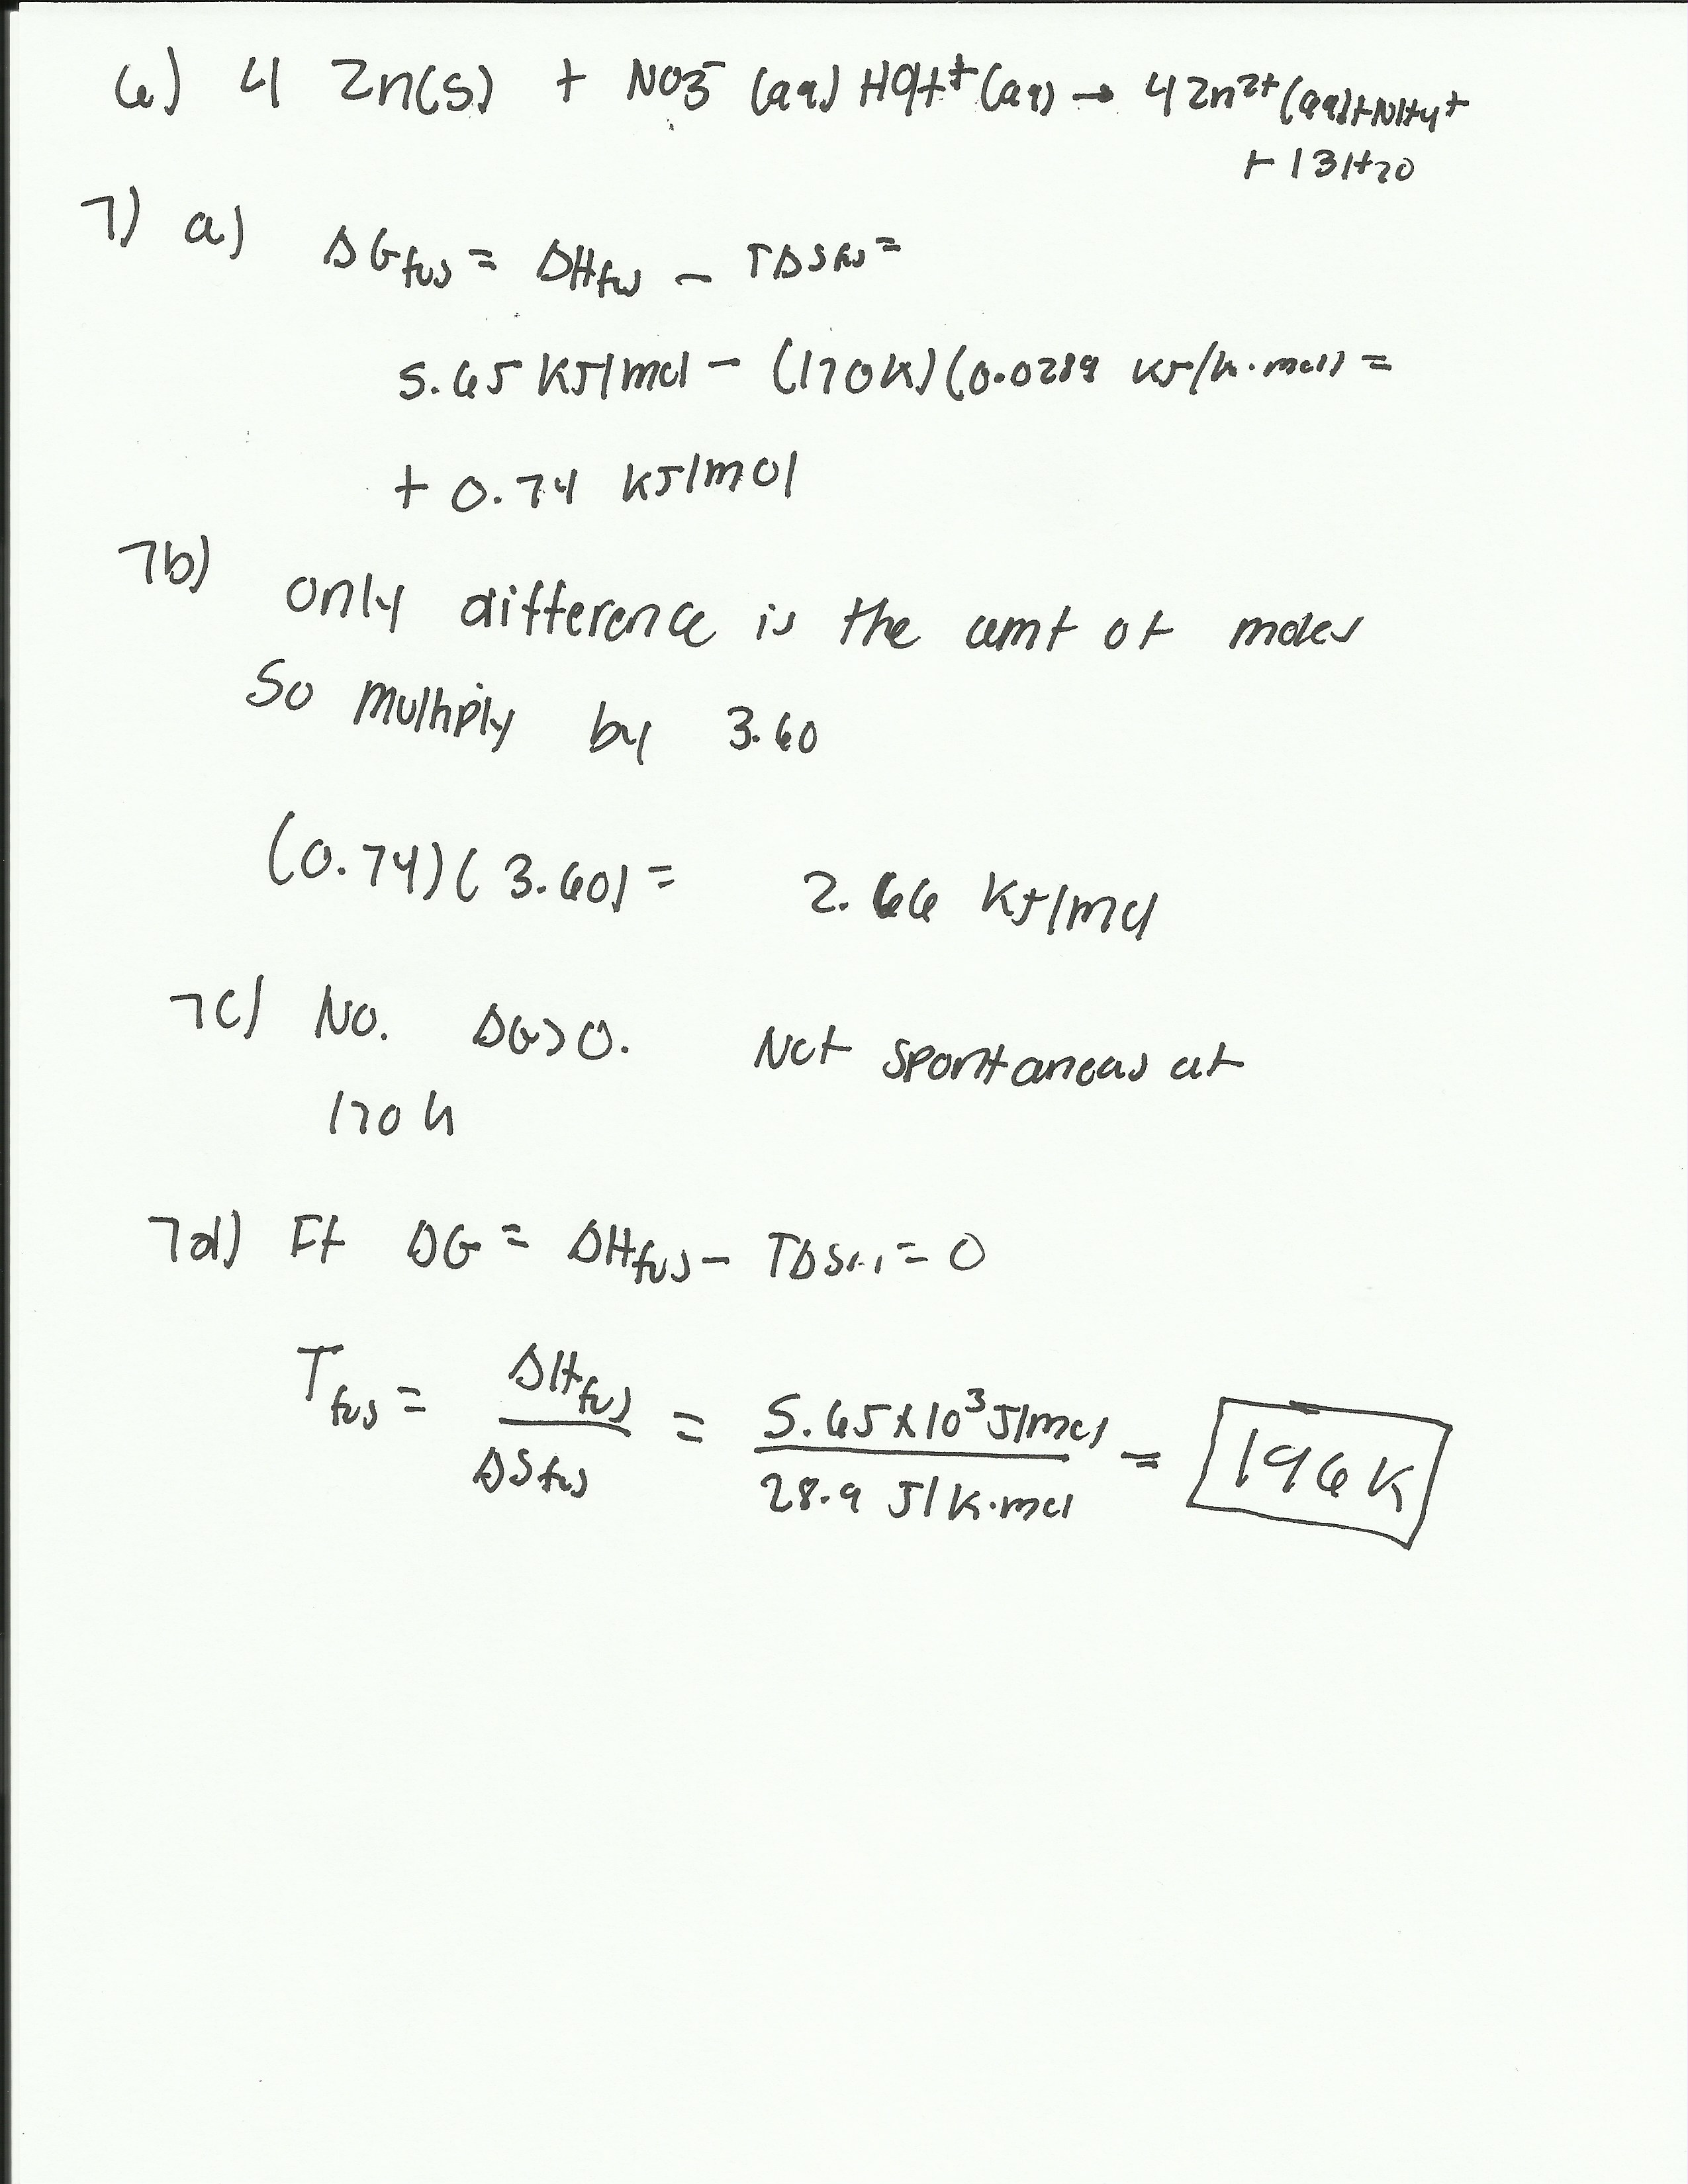 6) 4 Zn(s) + NO3⁻ (aq) H9H⁺ (aq) → 4 Zn²⁺ (aq) + NH4⁺
+ 13 H2O
7) a) ΔGfus = ΔHfus − TΔSfus =
5.65 KJ/mol − (170K) (0.0289 KJ/K·mol) =
+ 0.74 KJ/mol
7b) only difference is the amt of moles
So multiply by 3.60
(0.74) (3.60) = 2.66 KJ/mol
7c) No. ΔG>0. Not spontaneous at
170 K
7d) If ΔG = ΔHfus − TΔSfus = 0
Tfus = ΔHfus / ΔSfus = 5.65 x 10³ J/mol / 28.9 J/K·mol = 196 K